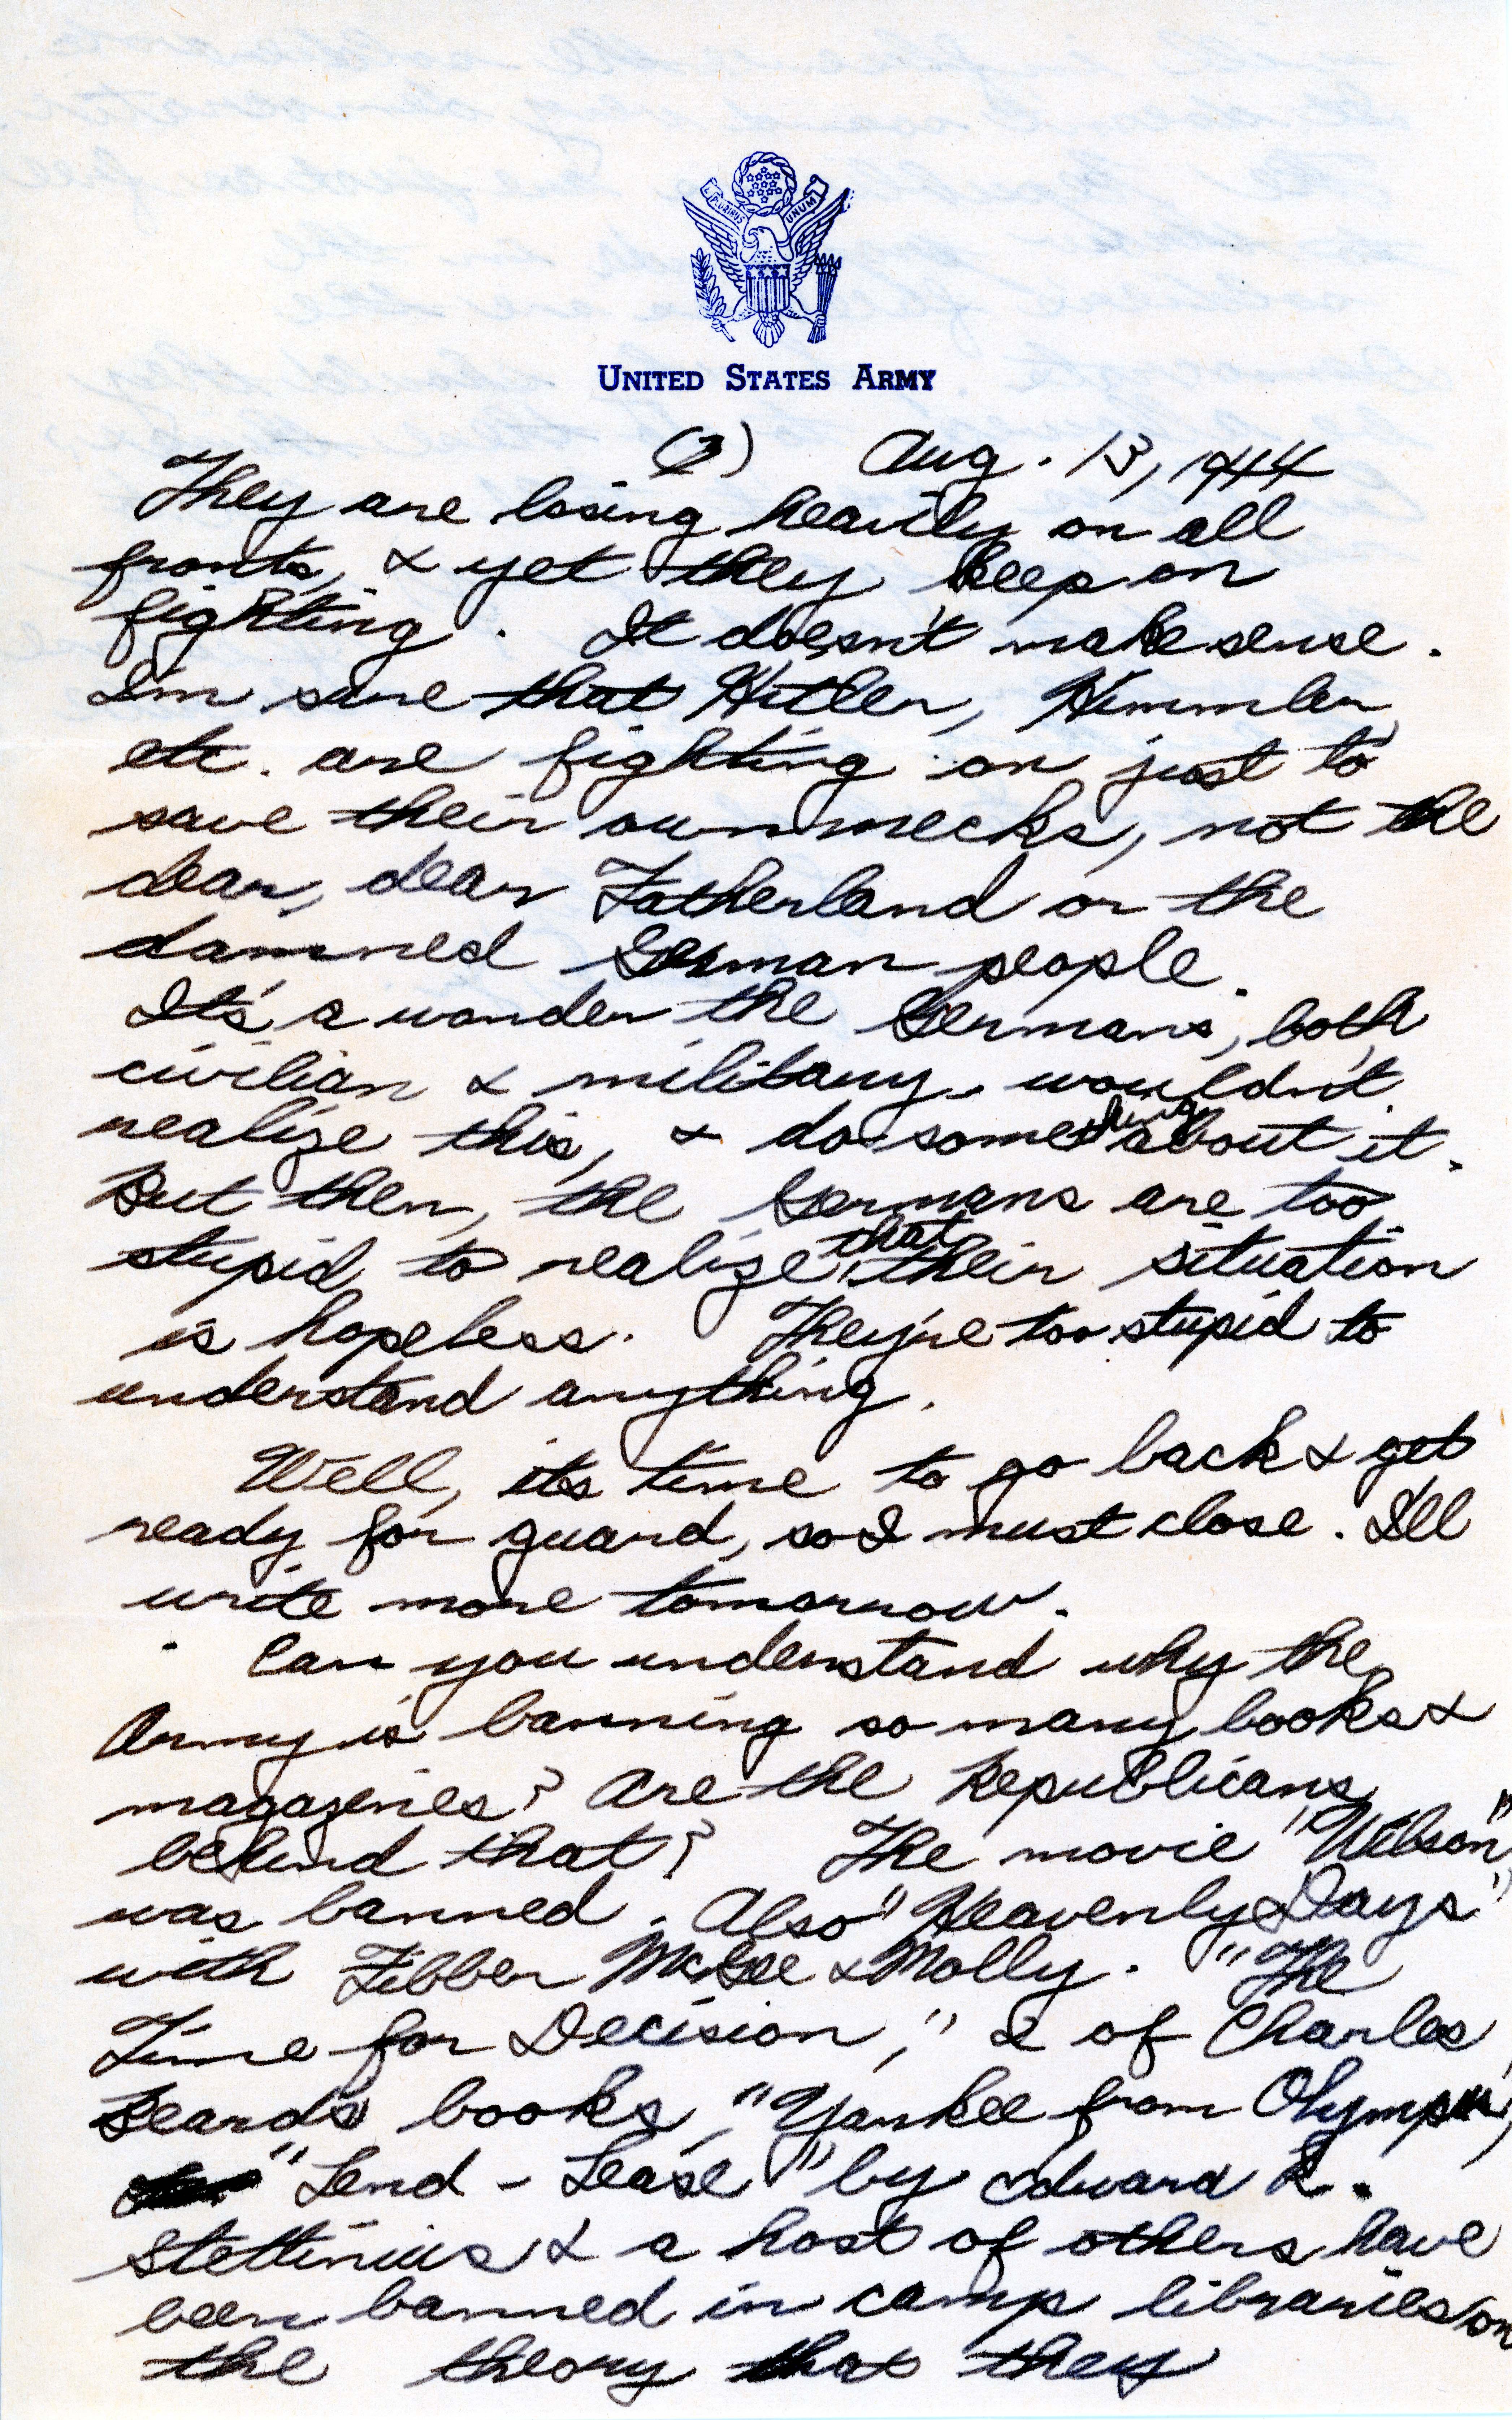 E PLURIBUS UNUM
UNITED STATES ARMY
(3) Aug. 13, 1944
They are losing heavily on all
fronts, & yet they keep on
fighting. It doesn't make sense.
I'm sure that Hitler, Himmler,
etc. are fighting on just to
save their own necks, not the
dear, dear Fatherland or the
damned German people.
It's a wonder the Germans, both
civilian & military, wouldn't
realize this, & do something about it.
But then, the Germans are too
stupid to realize that their situation
is hopeless. They're too stupid to
understand anything.
Well, its time to go back & get
ready for guard, so I must close. I'll
write more tomorrow.
Can you understand why the
Army is banning so many books &
magazines? Are the Republicans
behind that? The movie "Wilson"
was banned. Also "Heavenly Days"
with Fibber McGee & Molly. "The
Time for Decision," 2 of Charles
Beard's books, "Yankee from Olympus,"
"Lend-Lease" by Edward R.
Stettinius & a host of others have
been banned in camp libraries on
the theory that they